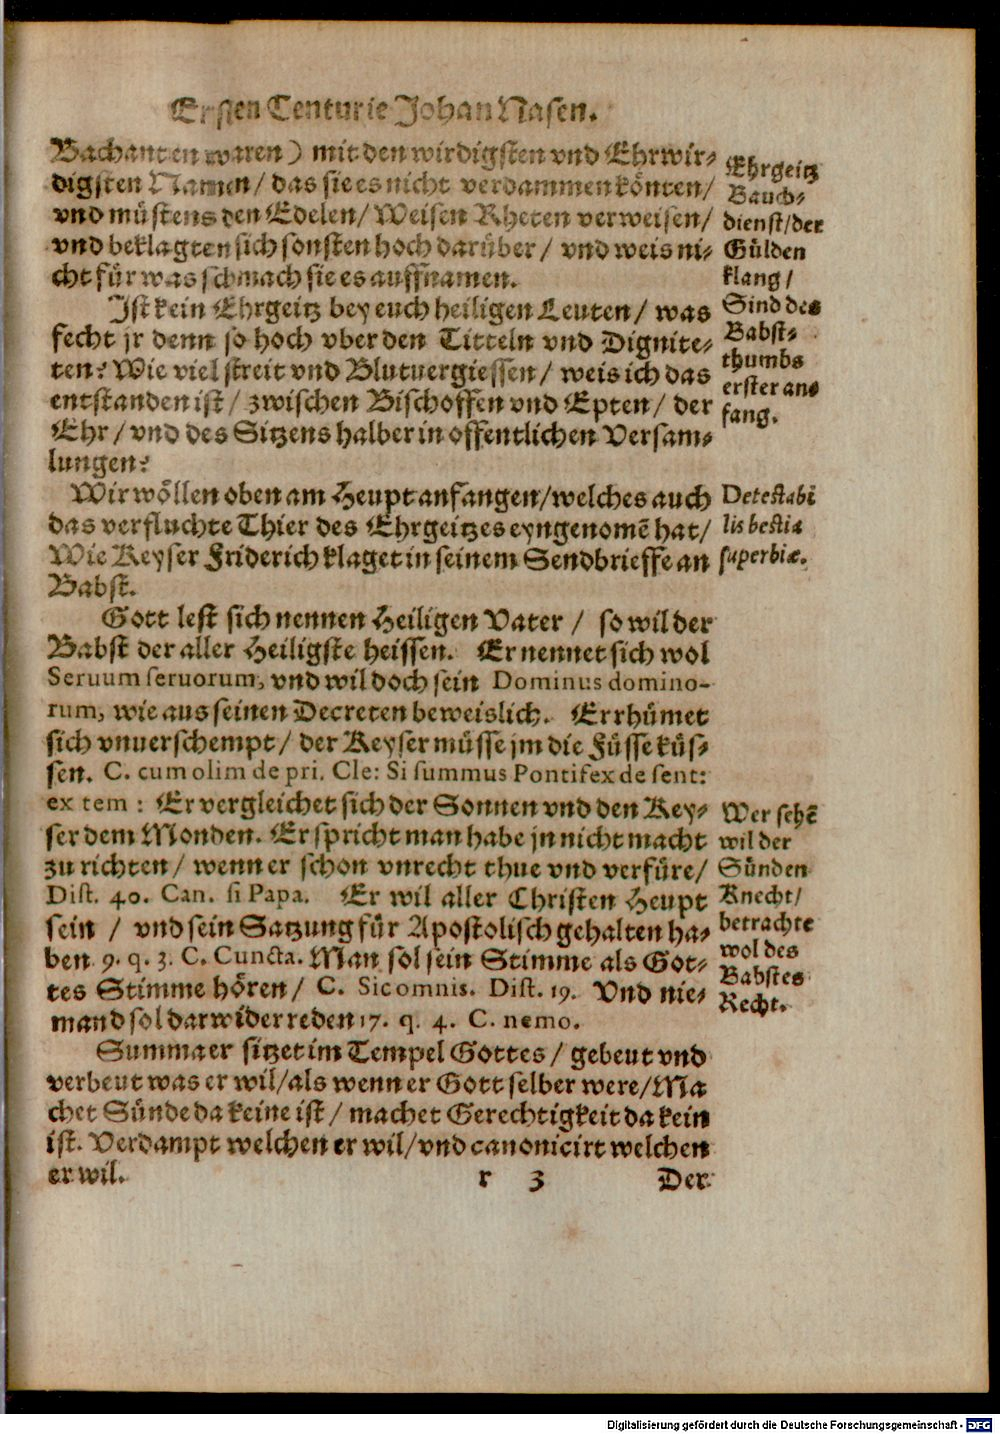 Ersten Centurie Johan Nasen.
Bachanten waren) mit den wirdigsten vnd Ehrwir⸗
digsten Namen / das sie es nicht verdammen könten /
vnd müstens den Edelen / Weisen Rheten verweisen /
vnd beklagten sich sonsten hoch darüber / vnd weis ni⸗
cht für was schmach sie es auffnamen.
Ehrgeitz
Bauch⸗
dienst / der
Gülden
klang /
Sind des
Babst⸗
thumbs
erster an⸗
fang.
Ist kein Ehrgeitz bey euch heiligen Leuten / was
fecht jr denn so hoch vber den Titteln vnd Dignite⸗
ten? Wie viel streit vnd Blutuergiessen / weis ich das
entstanden ist / zwischen Bischoffen vnd Epten / der
Ehr / vnd des Sitzens halber in offentlichen Versam⸗
lungen?
Wir wöllen oben am Heupt anfangen / welches auch
das verfluchte Thier des Ehrgeitzes eyngenomẽ hat /
Wie Keyser Friderich klaget in seinem Sendbrieffe an
Babst.
Detestabi
lis bestia
superbiæ.
Gott lest sich nennen Heiligen Vater / so wil der
Babst der aller Heiligste heissen. Er nennet sich wol
Seruum seruorum, vnd wil doch sein Dominus domino-
rum, wie aus seinen Decreten beweislich. Er rhümet
sich vnuerschempt / der Keyser müsse jm die Füsse küs⸗
sen. C. cum olim de pri. Cle: Si summus Pontifex de sent:
ex tem : Er vergleichet sich der Sonnen vnd den Key⸗
ser dem Monden. Er spricht man habe jn nicht macht
zu richten / wenn er schon vnrecht thue vnd verfüre /
Dist. 40. Can. si Papa. Er wil aller Christen Heupt
sein / vnd sein Satzung für Apostolisch gehalten ha⸗
ben 9. q. 3. C. Cuncta. Man sol sein Stimme als Got⸗
tes Stimme hören / C. Sic omnis. Dist. 19. Vnd nie⸗
mand sol darwider reden 17. q. 4. C. nemo.
Wer sehẽ
wil der
Sünden
Knecht /
betrachte
wol des
Babstes
Recht.
Summa er sitzet im Tempel Gottes / gebeut vnd
verbeut was er wil / als wenn er Gott selber were / Ma
chet Sünde da keine ist / machet Gerechtigkeit da kein
ist. Verdampt welchen er wil / vnd canonicirt welchen
er wil.
r 3 Der
Digitalisierung gefördert durch die Deutsche Forschungsgemeinschaft - DFG